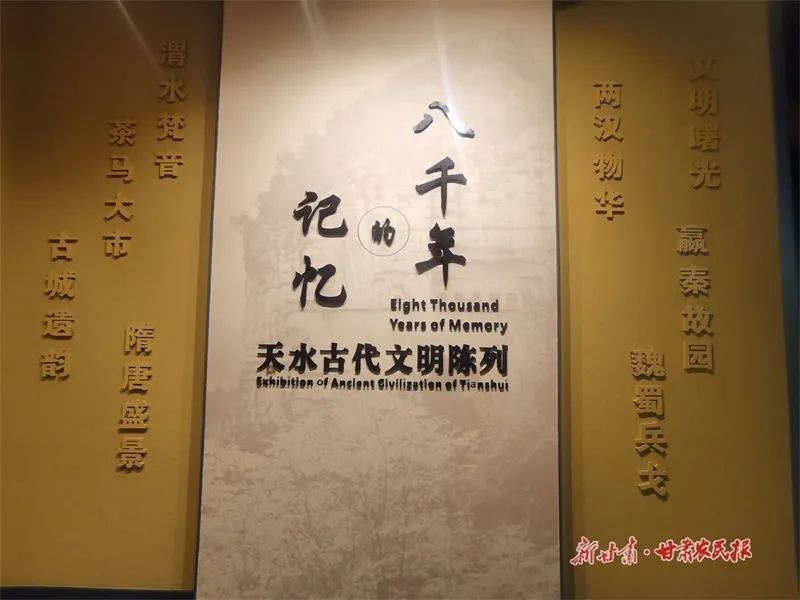 文明曙光
嬴秦故园
两汉物华
魏蜀兵戈
八千年
的
记忆
Eight Thousand
Years of Memory
天水古代文明陈列
Exhibition of Ancient Civilization of Tianshui
渭水梵音
隋唐盛景
茶马大市
古城遗韵
新甘肃·甘肃农民报